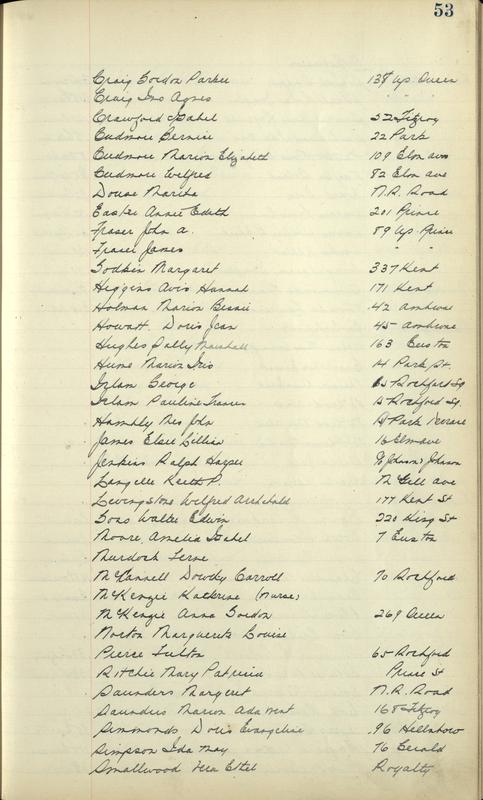 53
Craig Gordon Parker 138 Up. Queen
Craig Ino Agnes " "
Crawford Isabel 52 Fitzroy
Cudmore Bernice 22 Park
Cudmore Marion Elizabeth 109 Elm ave
Cudmore Wilfred 82 Elm ave
Douse Marita N.R. Road
Easter Annie Edith 201 Prince
Fraser John A. 89 Up. Prince
Fraser James " "
Godkin Margaret 337 Kent
Higgins Avis Hannah 171 Kent
Holman Marion Bessie 42 Ambrose
Howatt Doris Jean 45 Ambrose
Hughes Sally Marshall 163 Euston
Hume Marion Iris 14 Park St.
Inlam George Rochford Sq
Inlam Pauline Frances Rochford Sq.
Hambly Mrs John Park Terrace
James Elsie Lillian 16 Elm ave
Jenkins Ralph Harper
Langille Keith P. McGill ave
Levingstone Wilfred Archibald 177 Kent St
Walter Edwin 220 King St
Moore, Amelia Isabel 7 Euston
Murdoch Ferne
McCannell Dowdy Carroll 70 Rochford
McKenzie Katherine (Nurse)
McKenzie Anna Gordon 269 Queen
Norton Marguerite Louise
Pierce Fulton 65 Rochford
Ritchie Mary Patricia Prince St
Saunders Margaret N.R. Road
Saunders Marion Ada 168 Fitzroy
Simmonds Doris Evangeline 96 Hillsboro
Simpson Ida May 76 Gerald
Smallwood Vera Ethel Royalty